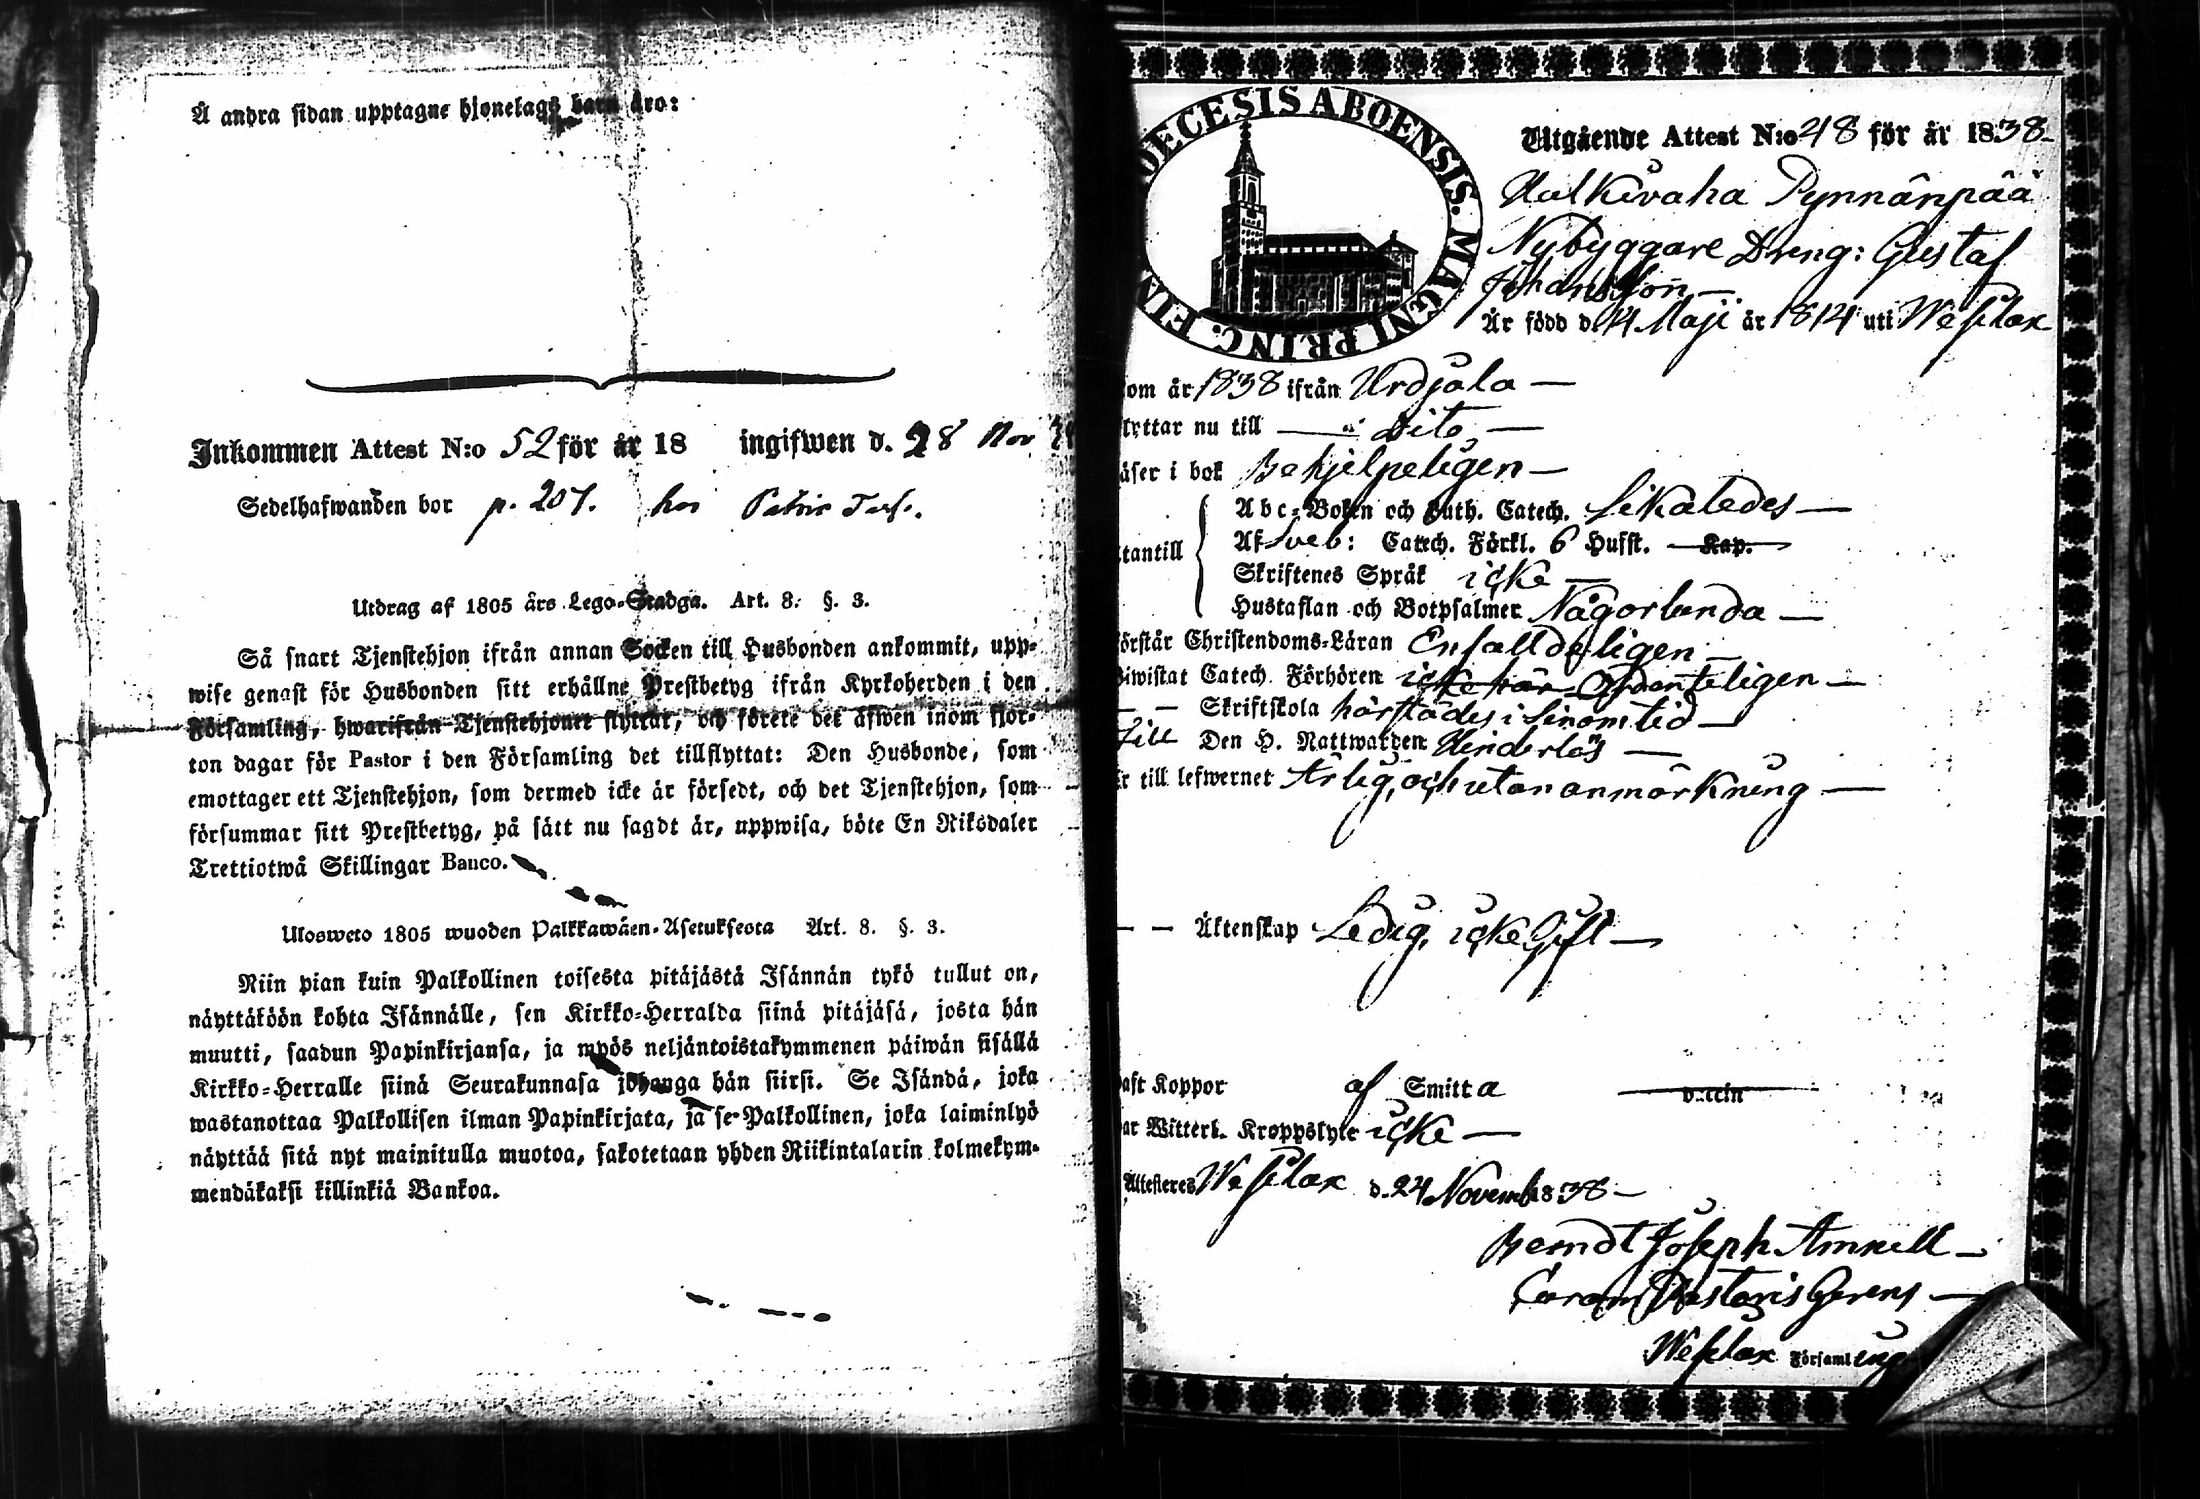 Å andra sidan upptagne hjonelags barn äro:
Inkommen Attest N:o 52 för år 18 ingifwen d. 28 Nov
Sedelhafwanden bor p. 207. hos
Utdrag af 1805 års Lego-Stadga. Art. 8. §. 3.
Så snart Tjenstehjon ifrån annan Socken till Husbonden ankommit, upp-
wise genast för Husbonden sitt erhållne Prestbetyg ifrån Kyrkoherden i den
Församling, hwarifrån Tjenstehjonet flyttat, och förete det äfwen inom fjor-
ton dagar för Pastor i den Församling det tillflyttat: Den Husbonde, som
emottager ett Tjenstehjon, som dermed icke är försedt, och det Tjenstehjon, som
försummar sitt Prestbetyg, på sätt nu sagdt är, uppwisa, böte En Riksdaler
Trettiotwå Skillingar Banco.
Ulosweto 1805 wuoden Palkkawäen-Asetuksesta Art. 8. §. 3.
Niin pian kuin Palkollinen toisesta pitäjästä Isännän tykö tullut on,
näyttäköön kohta Isännälle, sen Kirkko-Herralda siinä pitäjäsä, josta hän
muutti, saadun Papinkirjansa, ja myös neljäntoistakymmenen päiwän sisällä
Kirkko-Herralle siinä Seurakunnasa johonga hän siirsi. Se Isändä, joka
wastanottaa Palkollisen ilman Papinkirjata, ja se Palkollinen, joka laiminlyö
näyttää sitä nyt mainitulla muotoa, sakotetaan yhden Riikintalarin kolmekym-
mendäkaksi killinkiä Bankoa.
DECESIS ABOENSIS. MAGNI PRINC. FIN
Utgående Attest N:o 48 för år 1838
Halkivaha Pynnänpää
Nybyggare Dreng: Gustaf
Johansson
Är född d. 14 Maji år 1814 uti Wesilax
om år 1838 ifrån Urdjala
lyttar nu till dito
äser i bok Behjelpeligen
Abc-Boken och Luth. Catech. Likaledes
Af Sveb: Catech. Förkl. 6 Hufst. Kap.
tantill
Skriftenes Språk icke
Hustaflan och Botpsalmer Någorlunda
örstår Christendoms-Läran Enfalldeligen
iwistat Catech. Förhören icke här Ordenteligen
Skriftskola härstädes i sinom tid
Till Den H. Nattwarden Hinderlös
r till lefwernet Ärlig, och utan anmärkning
Äktenskap Ledig, icke Gift
aft Koppor af Smitta vaccin
ar Witterl. Kroppslyte icke
Attesteres Wesilax d. 24 Novemb 1838
Berndt Joseph Amnell
Curam Pastoris Gerens
Wesilax Församling